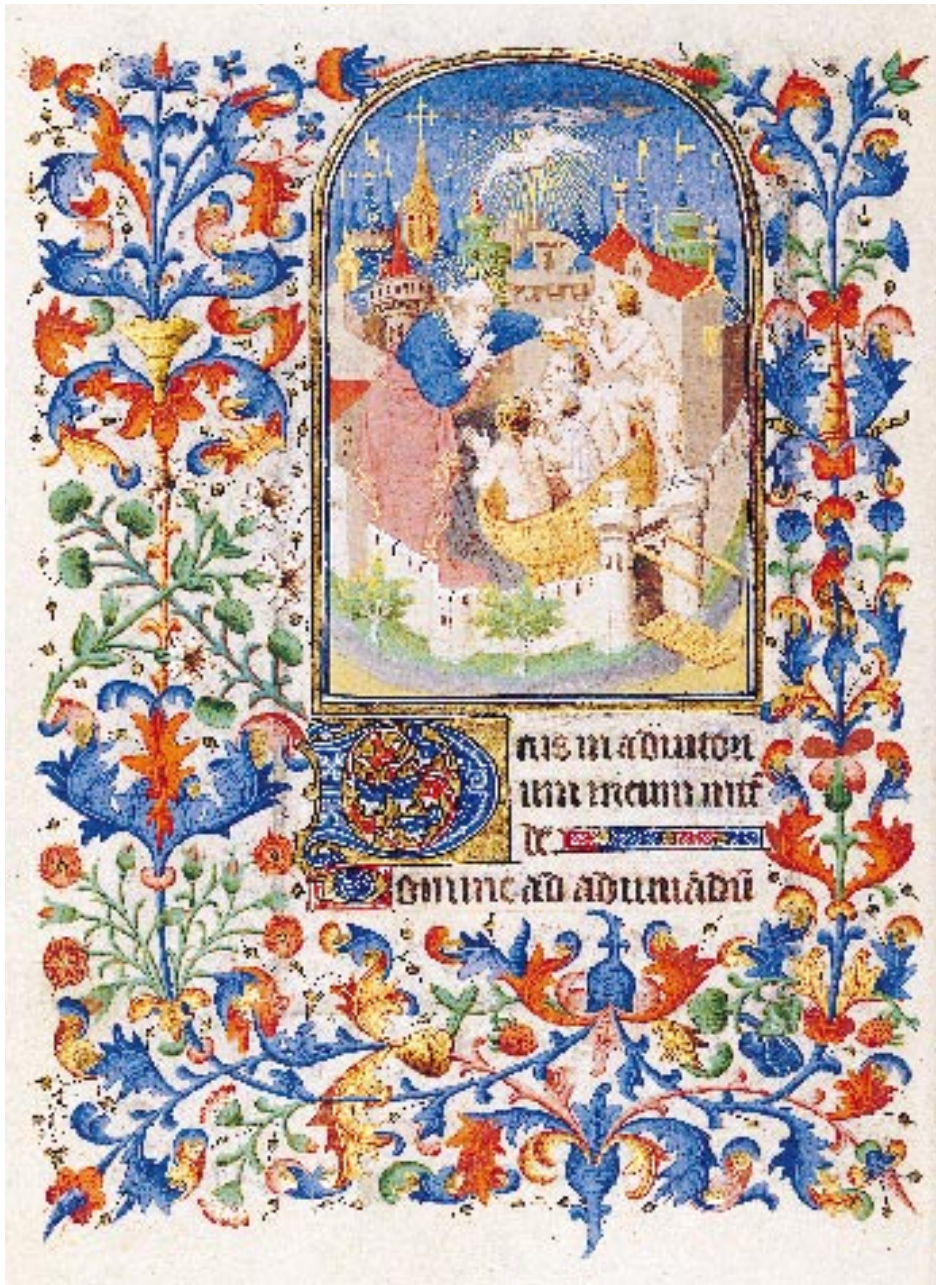 Deus in adiutori
um meum inte
de
Domine ad adiuuandu